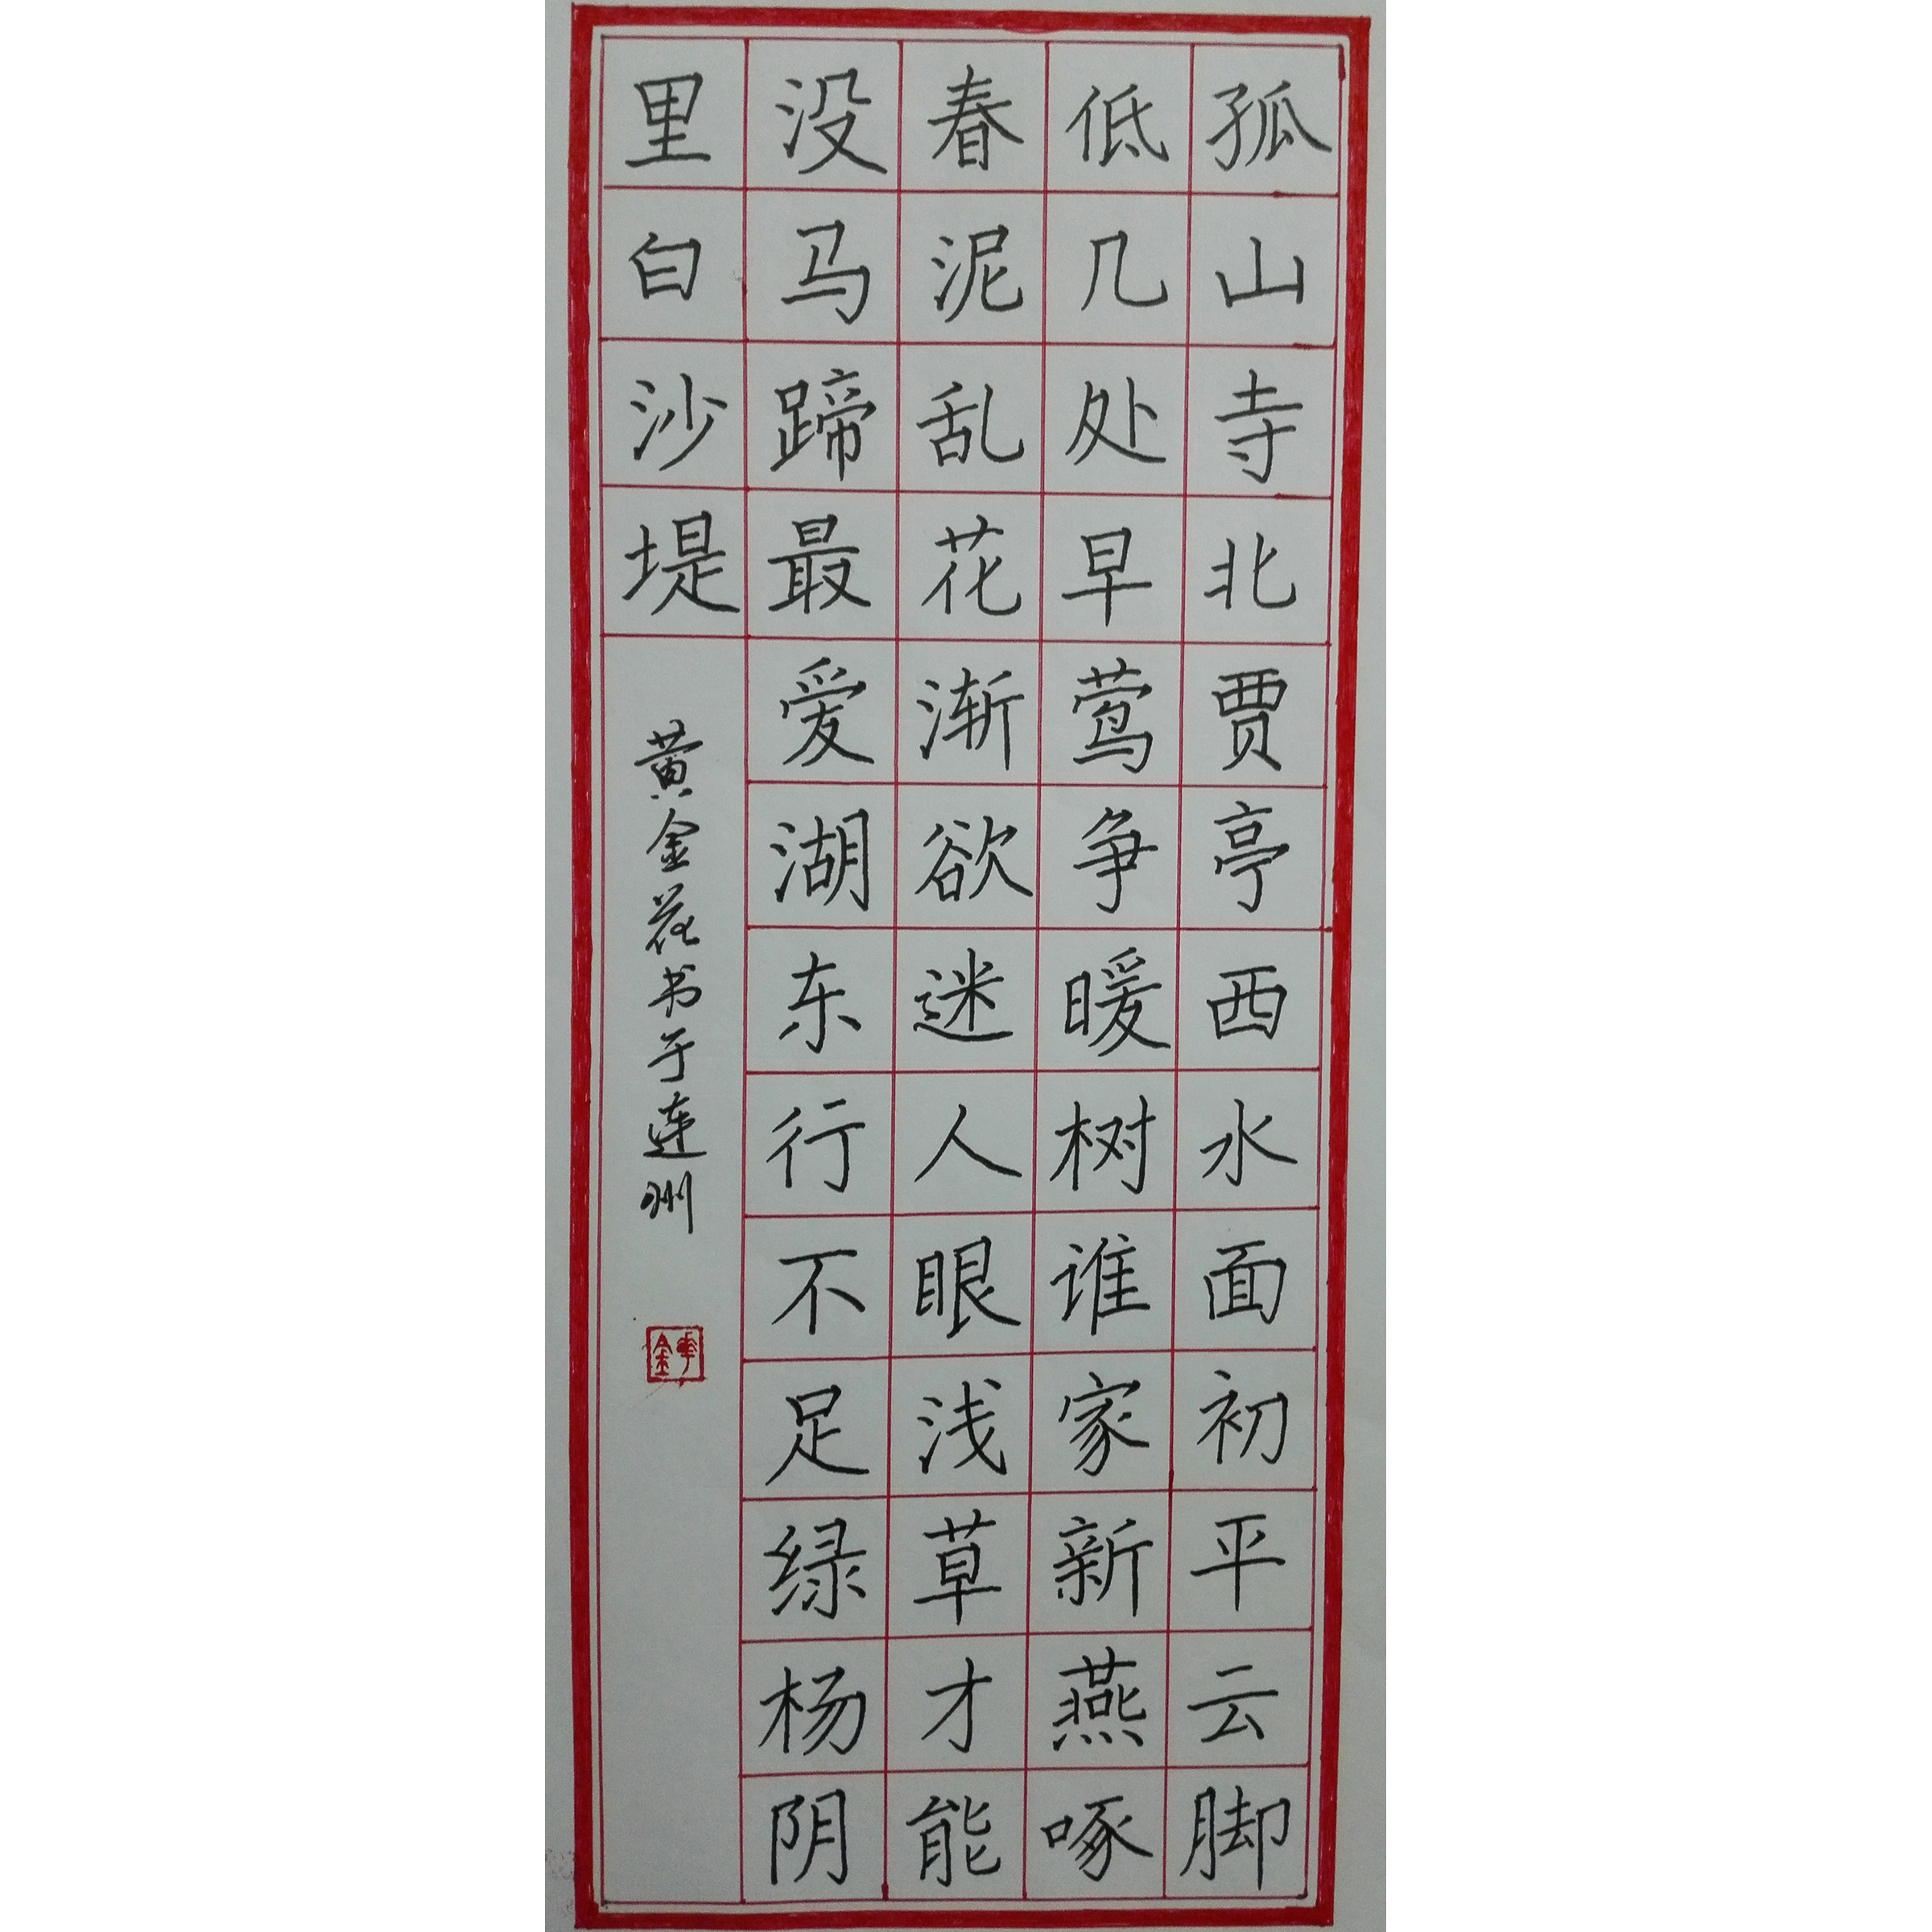 孤山寺北贾亭西水面初平云脚
低几处早莺争暖树谁家新燕啄
春泥乱花渐欲迷人眼浅草才能
没马蹄最爱湖东行不足绿杨阴
里白沙堤
黄金花书于莲州